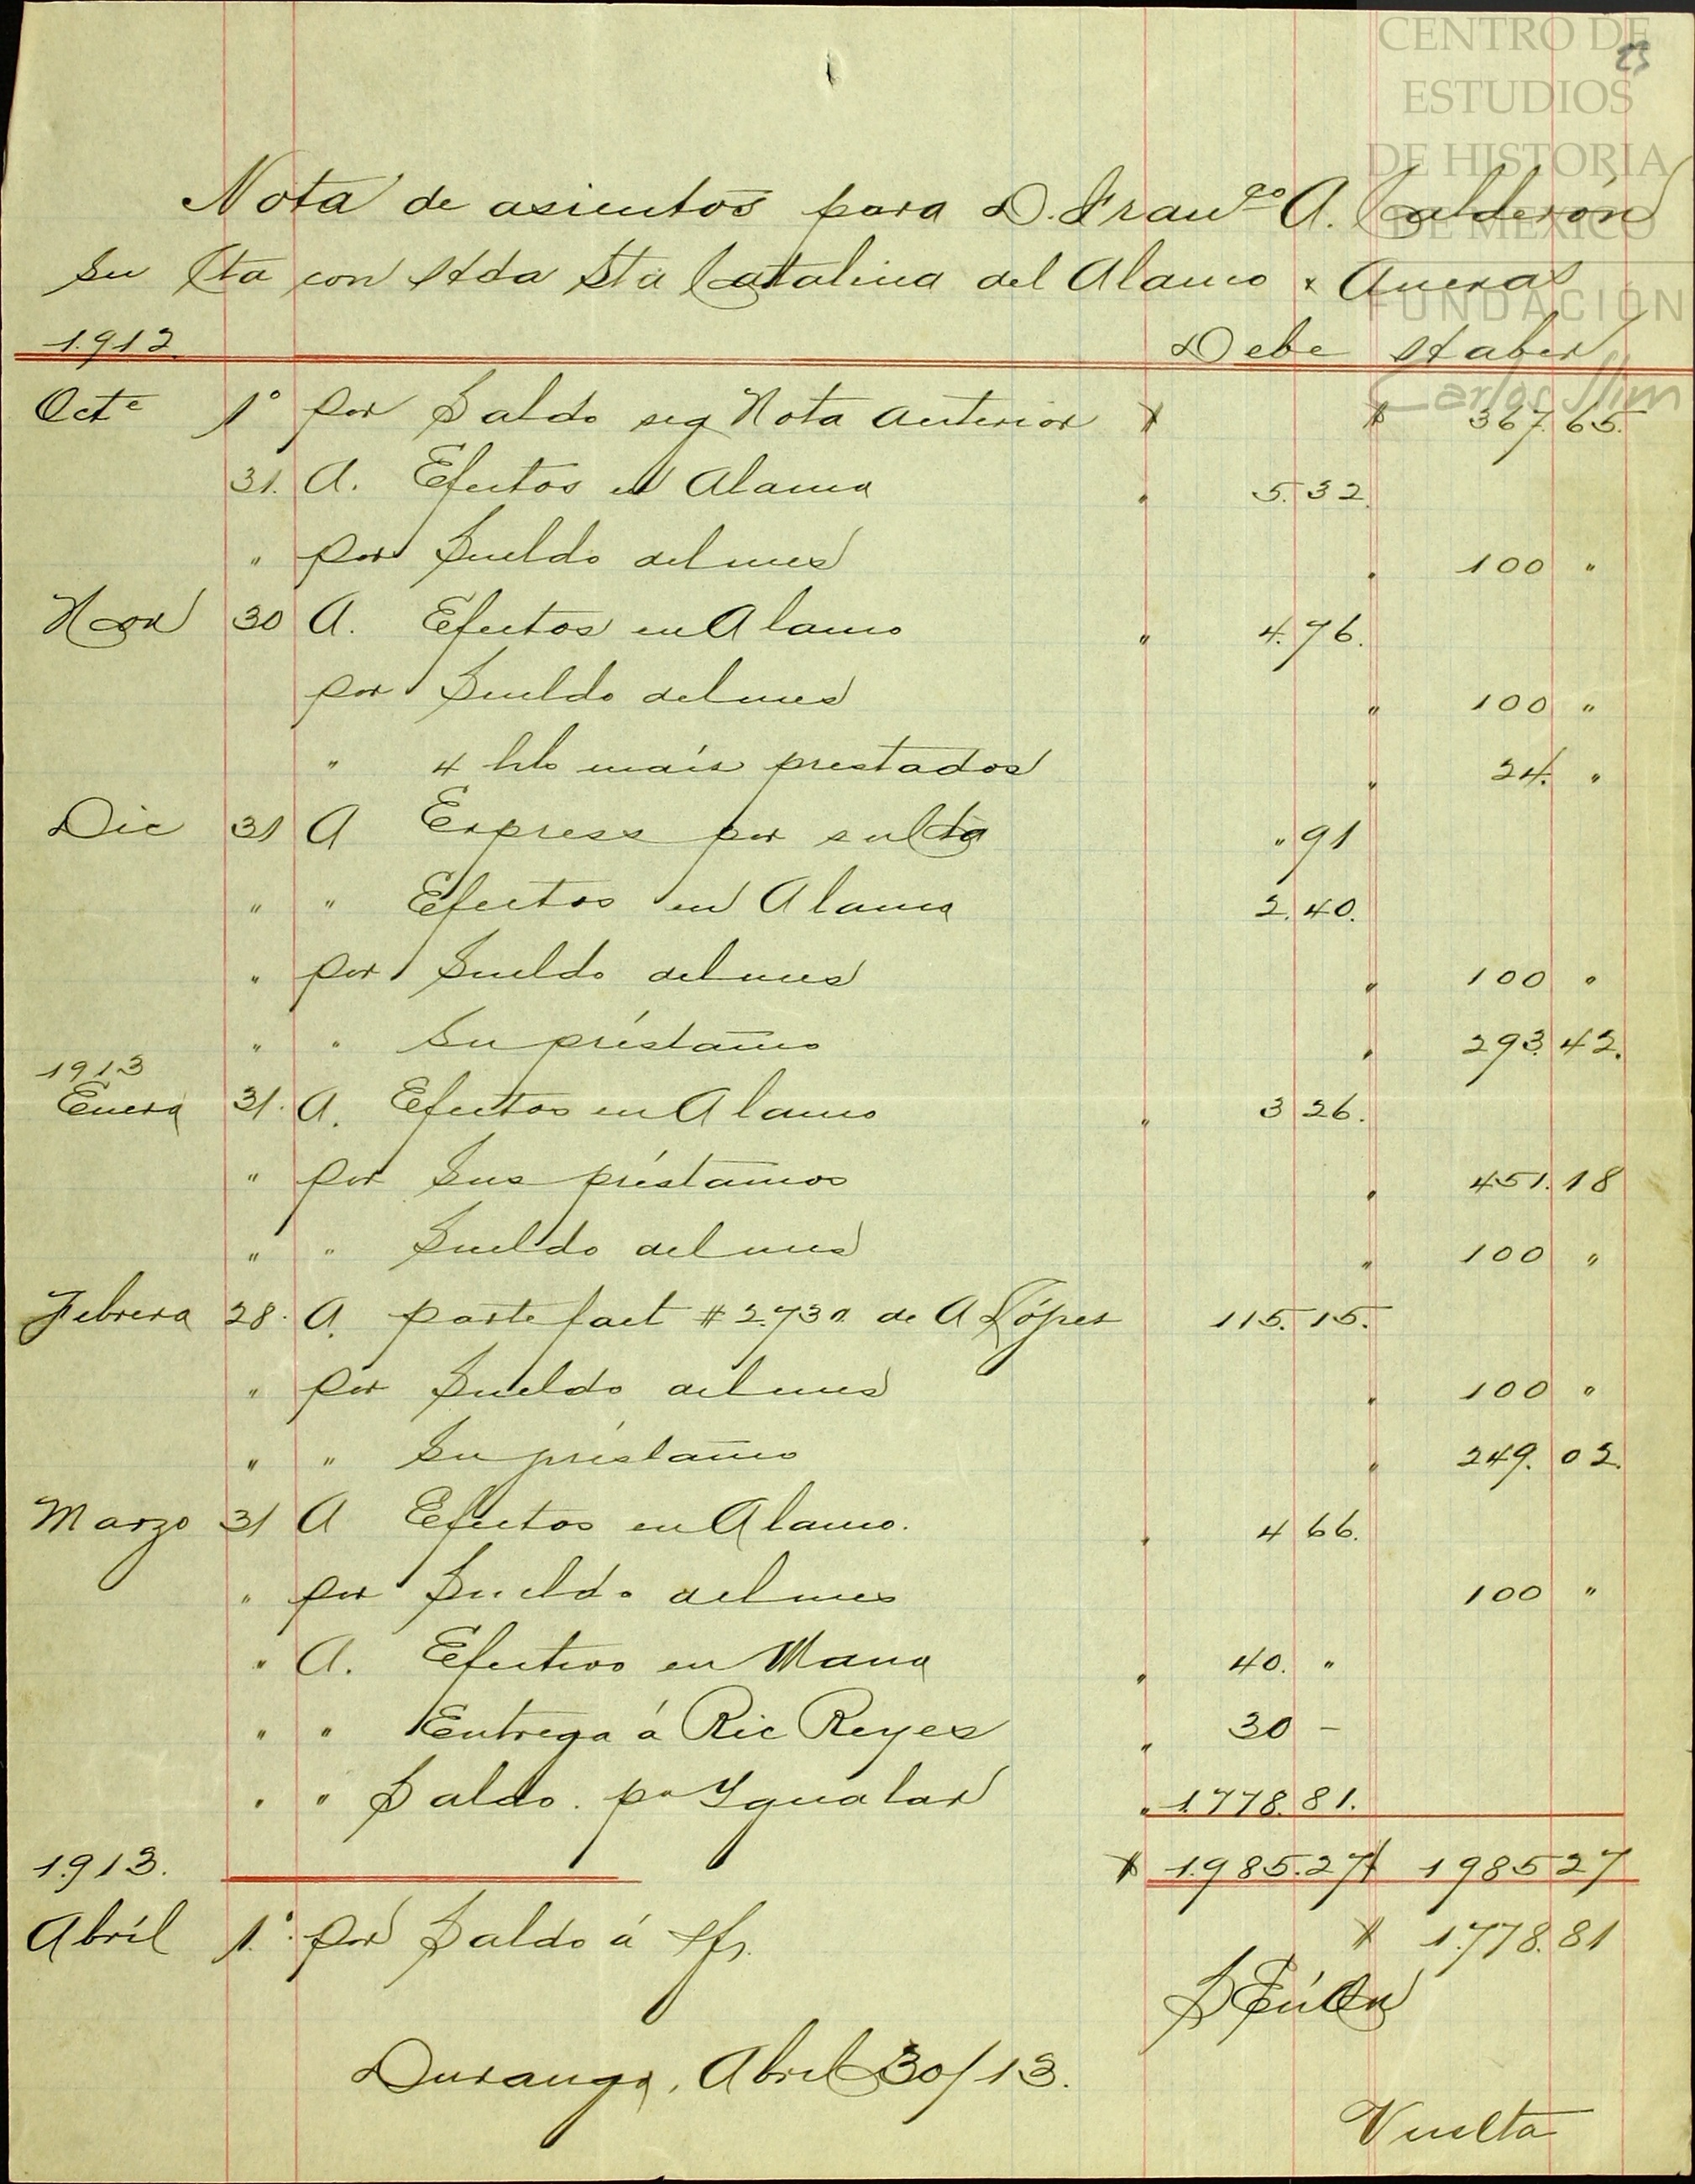 CENTRO DE
ESTUDIOS
DE HISTORIA
DE MÉXICO
FUNDACIÓN
Carlos Slim
23
Nota de asientos para D. Franco A. Calderón
su Cta con Hda Sta Catalina del Alamo x Anexas
1912. Debe Haber
Octe 1° por Saldo seg Nota anterior $ $ 367.65.
31. A. Efectos en Alamo " 5.32.
" por Sueldo del mes " 100 "
Nov 30 A. Efectos en Alamo " 4.76.
por Sueldo del mes " 100 "
" 4 hls maís prestados " 24. "
Dic 31 A Express por su Cta " 91
" " Efectos en Alamo 2.40.
" por Sueldo del mes " 100 "
" " Su préstamo " 293.42.
1913
Enero 31. A. Efectos en Alamo " 3 26.
" por Sus préstamos " 451.18
" " Sueldo del mes " 100 "
Febrero 28. A. parte fact # 2.730. de A López 115.15.
" por Sueldo del mes " 100 "
" " Su préstamo " 249.02.
Marzo 31 A Efectos en Alamo. " 4 66.
" por Sueldo del mes 100 "
" A. Efectivo en Mano " 40. "
" " Entrega á Ric Reyes " 30 –
" " Saldo. pa Ygualar " 1.778.81.
1913. $ 1.985.27 $ 1985 27
Abríl 1°. por Saldo á $ 1.778.81
S E ú O
Durango, Abril 30/13.
Vuelta